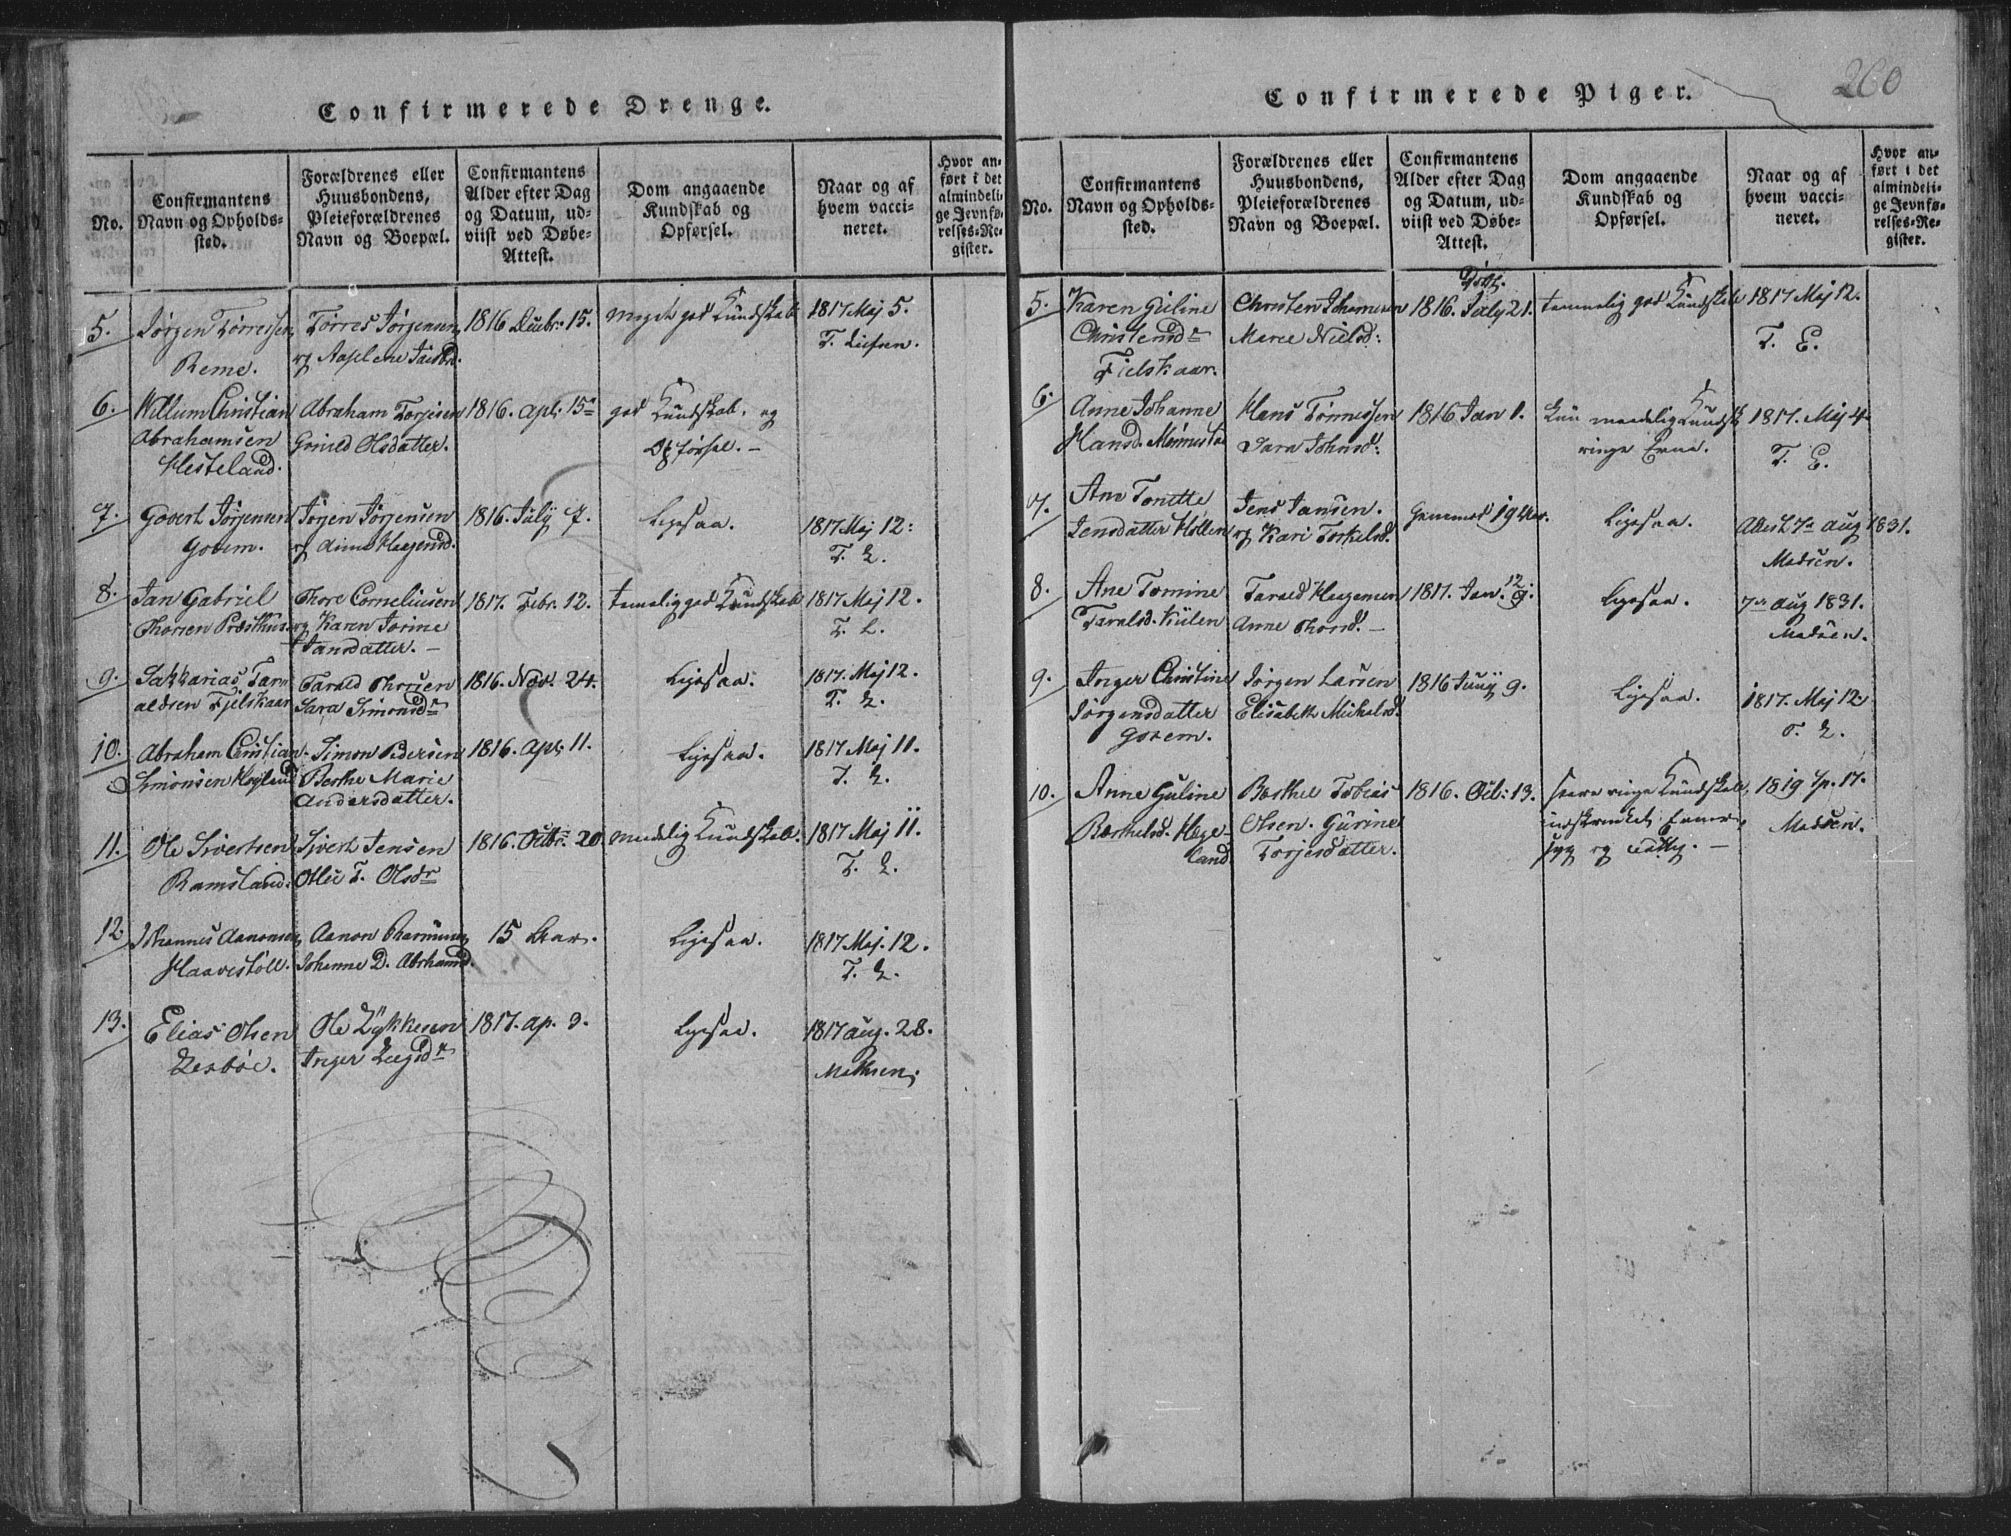 Confirmerede Drenge.
No.
Confirmantens
Navn og Opholds-
sted.
Forældrenes eller
Huusbondens,
Pleieforældrenes
Navn og Boepæl.
Confirmantens
Alder efter Dag
og Datum, ud-
viist ved Døbe-
Attest.
Dom angaaende
Kundskab og
Opførsel.
Naar og af
hvem vacci-
neret.
Hvor an-
ført i det
almindeli-
ge Jevnfø-
relses-Re-
gister.
5.
Jørgen Tørressen
Reme.
Tørres Jørgensen
og Jacobd.
1816 Decbr. 15.
meget god Kundskab
1817 Maj 5.
T.
6.
Willum Christian
Abrahamsen
Hesteland.
Abraham Torjesen
Olsdatter.
1816. apl. 15
god Kundskab. og
Opførsel. –
7.
Govert Jørgensen
Goxem.
Jørgen Jørgensen
og
1816. July 7.
Ligesaa.
1817 Maj 12:
T. E.
8.
Jan Gabriel
Thorsen Præsthus
Thore Corneliusen
og Karen Jorine
Jansdatter. –
1817. Febr. 12.
temelig god Kundskab
1817 Maj 12.
T. E.
9.
Sakkarias Tar
aldsen Fjelskaar
Tarald Thorsen
Sara Simonsdr
1816. Nov. 24.
Ligesaa.
1817. Maj 12.
T. E.
10.
Abraham Christian
Simonsen Høyland
Simon Pedersen
Berthe Marie
Andersdatter.
1816. Apl. 11.
Ligesaa.
1817 Maj 11.
T. E.
11.
Ole Sivertsen
Ramsland.
Sivert Jensen
T. Olsdr
1816. Octbr. 20.
maadelig Kundskab.
1817 Maj 11.
T. E.
12.
Johannes Aanonsen
Haavestøll.
Aanon
Johanne D.
15 Aar.
Ligesaa.
1817 Maj. 12.
T. E.
13.
Elias Olsen
Ole
Inger
1817. ap. 9.
Ligesaa.
1817 aug. 28.
260
Confirmerede Piger.
No.
Confirmantens
Navn og Opholds-
sted.
Forældrenes eller
Huusbondens,
Pleieforældrenes
Navn og Boepæl.
Confirmantens
Alder efter Dag
og Datum, ud-
viist ved Døbe-
Attest.
Dom angaaende
Kundskab og
Opførsel.
Naar og af
hvem vacci-
neret.
Hvor an-
ført i det
almindeli-
ge Jevnfø-
relses-Re-
gister.
5.
Karen Guline
Christensdr
Fielskaar.
Christen
Maree Nielsd:
1816. July 21.
temmelig god Kundskab
1817 Maj 12.
T. E.
6.
Anne Johanne
Hansd.
Hans Tønnessen
Sara Johnsd:
1816 Jan 1.
Kun maadelig Kundsk
ringe Evne.
1817. Maj 4
T. E.
7.
Ane Tonette
Jensdatter Hollen
Jens Jansen.
og Kari Torkelsd.
Gammel 19 Aar.
Ligesaa.
Attest 7de aug 1831.
Madsen.
8.
Ane Tomine
Taralsd. Kulen
Tarald Haagensen
Anne Thorsd. –
1817. Jan. 12
Ligesaa.
7de aug 1831.
Madsen.
9.
Inger Christine
Jørgensdatter
Goxem.
Jørgen Larsen
Elisabeth Mickelsd.
1816 Juny 9.
Ligesaa.
1817. Maj 12
T. E.
10.
Anne Guline
Barthelsd. Hæge-
land
Barthel Tobias
Olsen. Gurine
Torjesdatter.
1816. Oct: 13.
saare ringe Kundskab,
indskrænket Evne,
syg og
1819 Sp. 17.
Madsen.